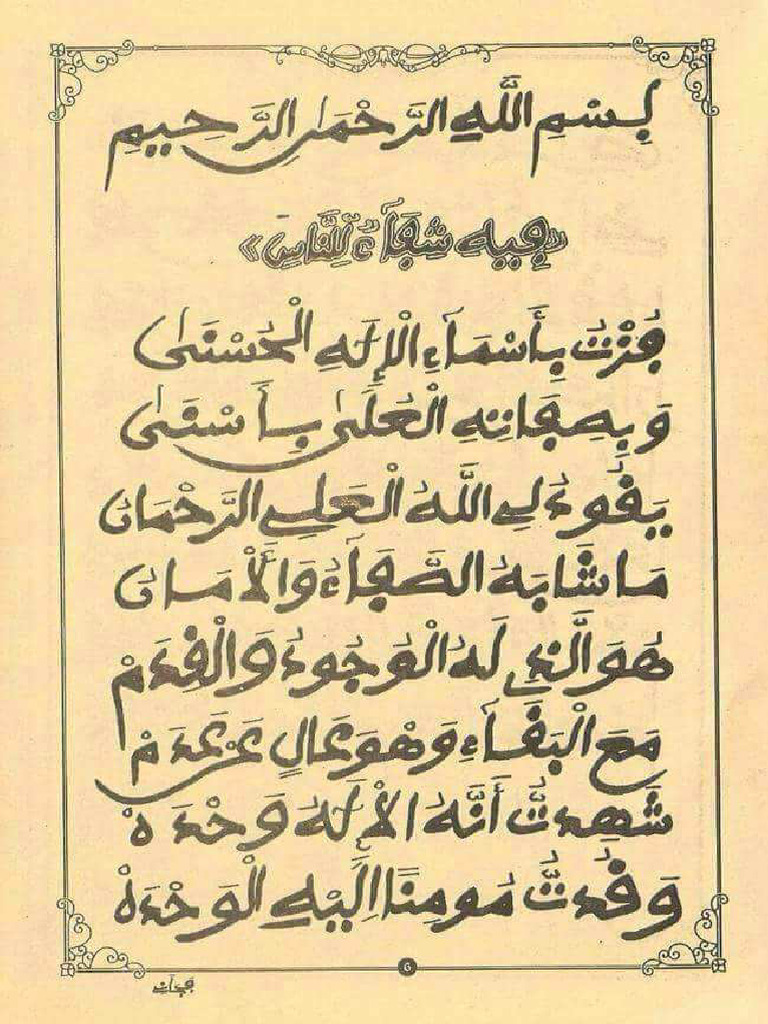 بِسْمِ اللَّهِ الرَّحْمَٰنِ الرَّحِيمِ
«فِيهِ شِفَآءٌ لِّلنَّاسِ»
فُزْتُ بِأَسْمَآءِ الْإِلَٰهِ الْحُسْنَىٰ
وَبِصِفَاتِهِ الْعُلَىٰ بِأَسْنَىٰ
يَقُودُ لِي اللَّهُ الْعَلِي الرَّحْمَانُ
مَا شَابَهُ الصَّفَآءُ وَالْأَمَانُ
هُوَ الَّذِي لَهُ الْوُجُودُ وَالْقِدَمْ
مَعَ الْبَقَآءِ وَهْوَ عَالٍ عَنْ عَدَمْ
شَهِدتُّ أَنَّهُ الْإِلَٰهُ وَحْدَهْ
وَقُدتُّ مُومِنًا إِلَيْهِ الْوَحْدَهْ
6